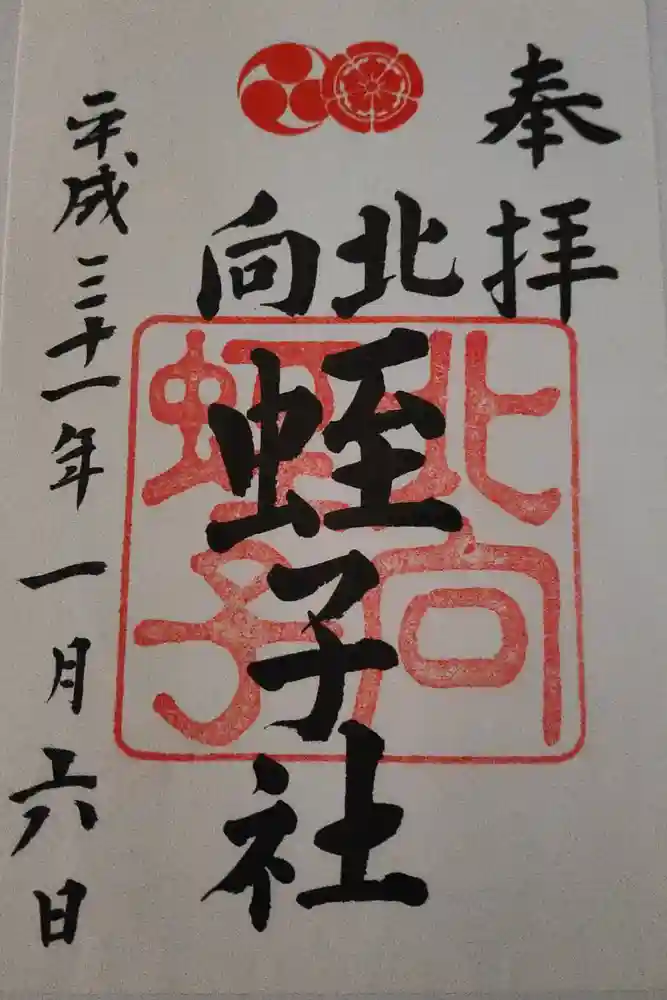 奉拝
北向
蛭子社
平成三十一年一月六日
北向
蛭子